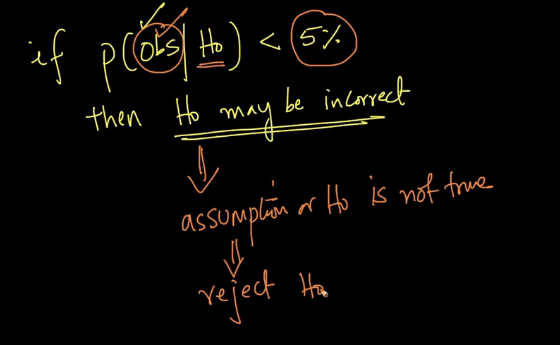 if p(obs | Ho) < 5%
then Ho may be incorrect
assumption or Ho is not true
reject Ho